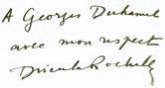 A Georges Duhamel
avec mon respect
Drieu la Rochelle